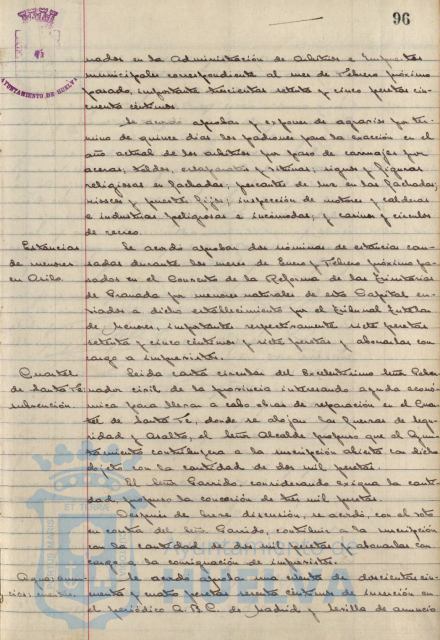 96
AYUNTAMIENTO DE HUELVA
nados en la Administración de Arbitrios e Impuestos
municipales correspondiente al mes de Febrero próximo
pasado, importante trescientas setenta y cinco pesetas cin-
cuenta céntimos.
Se acordó aprobar y exponer de agravios por tér-
mino de quince días los padrones para la exacción en el
año actual de los arbitrios por paso de carruajes por
aceras; toldos, escaparates y vitrinas; signos y figuras
religiosas en fachadas; pescantes de luz en las fachadas;
kioscos y puestos fijos; inspección de motores y calderas
e industrias peligrosas e incómodas; y casinos y círculos
de recreo.
Estancias
de menores
en Asilo.
Se acordó aprobar dos nóminas de estancias cau-
sadas durante los meses de Enero y Febrero próximo pa-
sados en el Convento de la Reforma de las Trinitarias
de Granada por menores naturales de esta Capital en-
viados a dicho establecimiento por el Tribunal Tutelar
de Menores, importantes respectivamente siete pesetas
setenta y cinco céntimos y siete pesetas y abonarlas con
cargo a imprevistos.
Cuartel
de Santa Fé,
subvención.
Leida carta circular del Excelentísimo Señor Gober-
nador civil de la provincia interesando ayuda econó-
mica para llevar a cabo obras de reparación en el Cuar-
tel de Santa Fé, donde se alojan las fuerzas de Segu-
ridad y Asalto, el Señor Alcalde propuso que el Ayun-
tamiento contribuyera a la suscripción abierta con dicho
objeto con la cantidad de dos mil pesetas.
El Señor Garrido, considerando exigua la canti-
dad, propuso la concesión de tres mil pesetas.
Después de breve discusión, se acordó, con el voto
en contra del Señor Garrido, contribuir a la suscripción
con la cantidad de dos mil pesetas y abonarlas con
cargo a la consignación de imprevistos.
Se acordó aprobar una cuenta de doscientas cin-
cuenta y cuatro pesetas sesenta céntimos de inserción en
el periódico A.B.C. de Madrid y Sevilla de anuncio